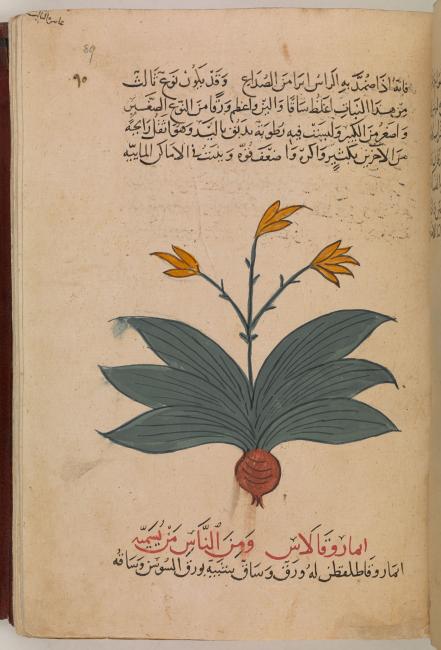 فانه اذا ضمد به الراس ابرا من الصداع وقد يكون نوع ثالث
من هذا النبات اغلظ ساقا والين واعظم ورقا من النوع الصغير
واصغر من الكبير وليست فيه رطوبة يدبق باليد وهو اثقل رايحة
من الاخرين بكثير واكره واضعف قوة وينبت فى الاماكن المايية
ايماروقالاس ومن الناس من يسميه
ايماروقاطلقطن له ورق وساق يشبه بورق السوسن وساقه
89
٩٠